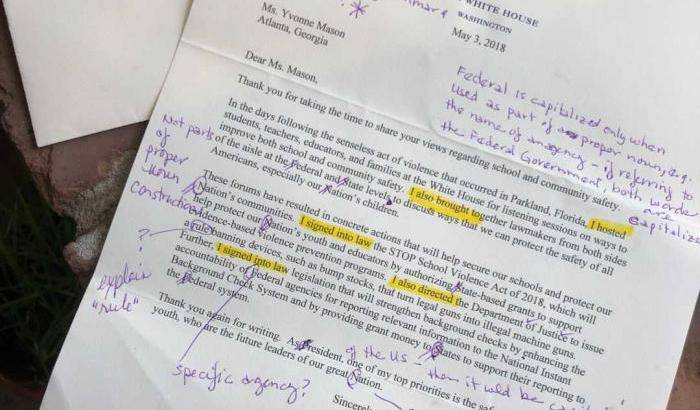 WHITE HOUSE
WASHINGTON
May 3, 2018
Ms. Yvonne Mason
Atlanta, Georgia
Dear Ms. Mason,
Thank you for taking the time to share your views regarding school and community safety.
In the days following the senseless act of violence that occurred in Parkland, Florida, I hosted
students, teachers, educators, and families at the White House for listening sessions on ways to
improve both school and community safety. I also brought together lawmakers from both sides
of the aisle at the Federal and State levels to discuss ways that we can protect the safety of all
Americans, especially our Nation's children.
These forums have resulted in concrete actions that will help secure our schools and protect our
Nation's communities. I signed into law the STOP School Violence Act of 2018, which will
help protect our Nation's youth and educators by authorizing State-based grants to support
evidence-based violence prevention programs. I also directed the Department of Justice to issue
a rule banning devices, such as bump stocks, that turn legal guns into illegal machine guns.
Further, I signed into law legislation that will strengthen background checks by enhancing the
accountability of Federal agencies for reporting relevant information to the National Instant
Background Check System and by providing grant money to States to support their reporting to
the Federal system.
Thank you again for writing. As President, one of my top priorities is the
youth, who are the future leaders of our great Nation.
Sincerely
Federal is capitalized only when
used as part of a proper noun, e.g.
the name of an agency - if referring to
the Federal Government, both words
are
capitalized
Not parts
of
proper
noun
construction
?
explain
"rule"
specific agency?
of the US -
then it would be